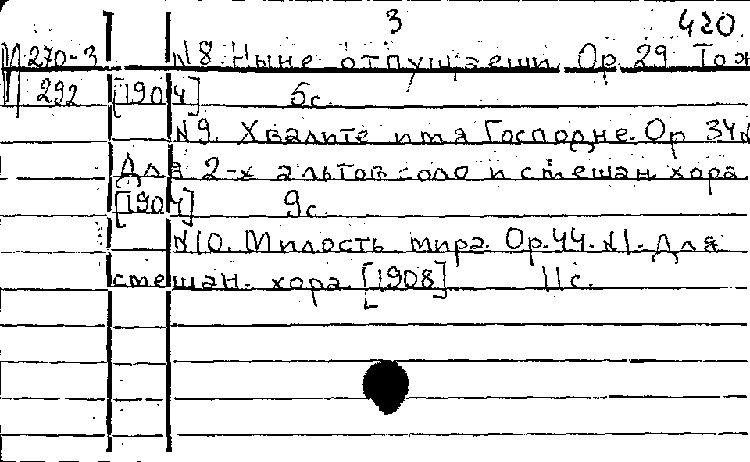 3 420
М 270-3 N8. Ныне отпущаеши. Ор. 29. То же
П 292 [1904] 5с.
N9. Хвалите имя Господне. Ор 34 N
Для 2-х альтов соло и смешан. хора
[1904] 9с.
N10. Милость мира. Ор. 44. N1. Для
смешан. хора. [1908] 11с.